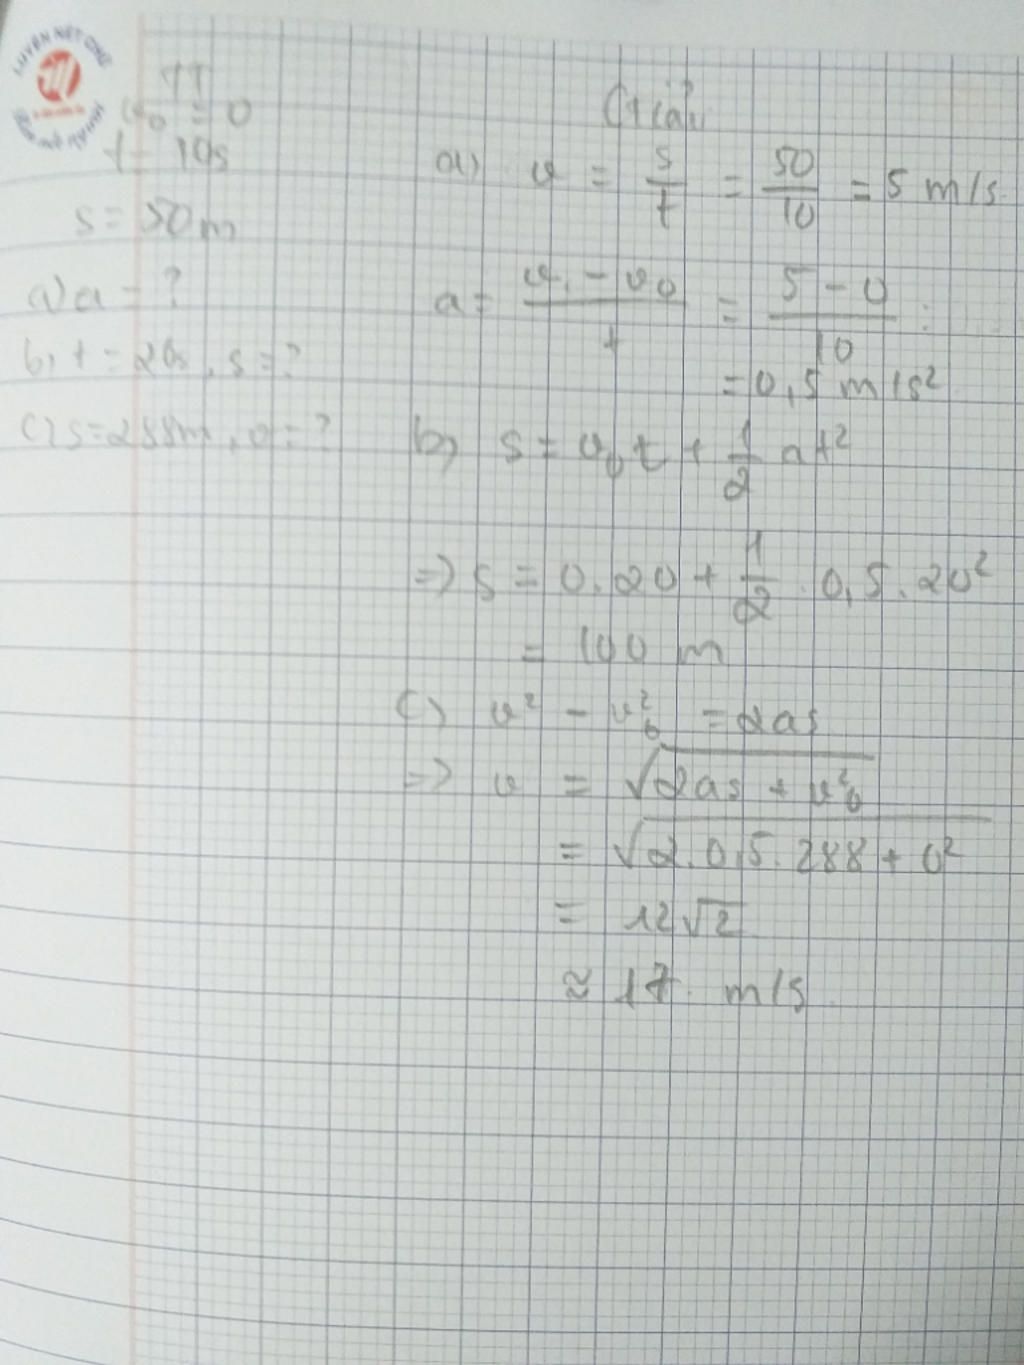 LUYỆN NÉT CHỮ
TT
v₀ = 0
t = 10s
s = 50m
a) a = ?
b, t = 20s, s = ?
c) s = 288m, v = ?
Giải
a) v = s/t = 50/10 = 5 m/s
a = (v. - v₀)/t = (5 - 0)/10 :
= 0,5 m/s²
b) s = v₀t + 1/2 at²
=> s = 0.20 + 1/2 . 0,5. 20²
= 100 m
c) v² - v₀² = 2as
=> v = √(2as + v₀²)
= √(2.0,5.288 + 0²)
= 12√2
≈ 17 m/s